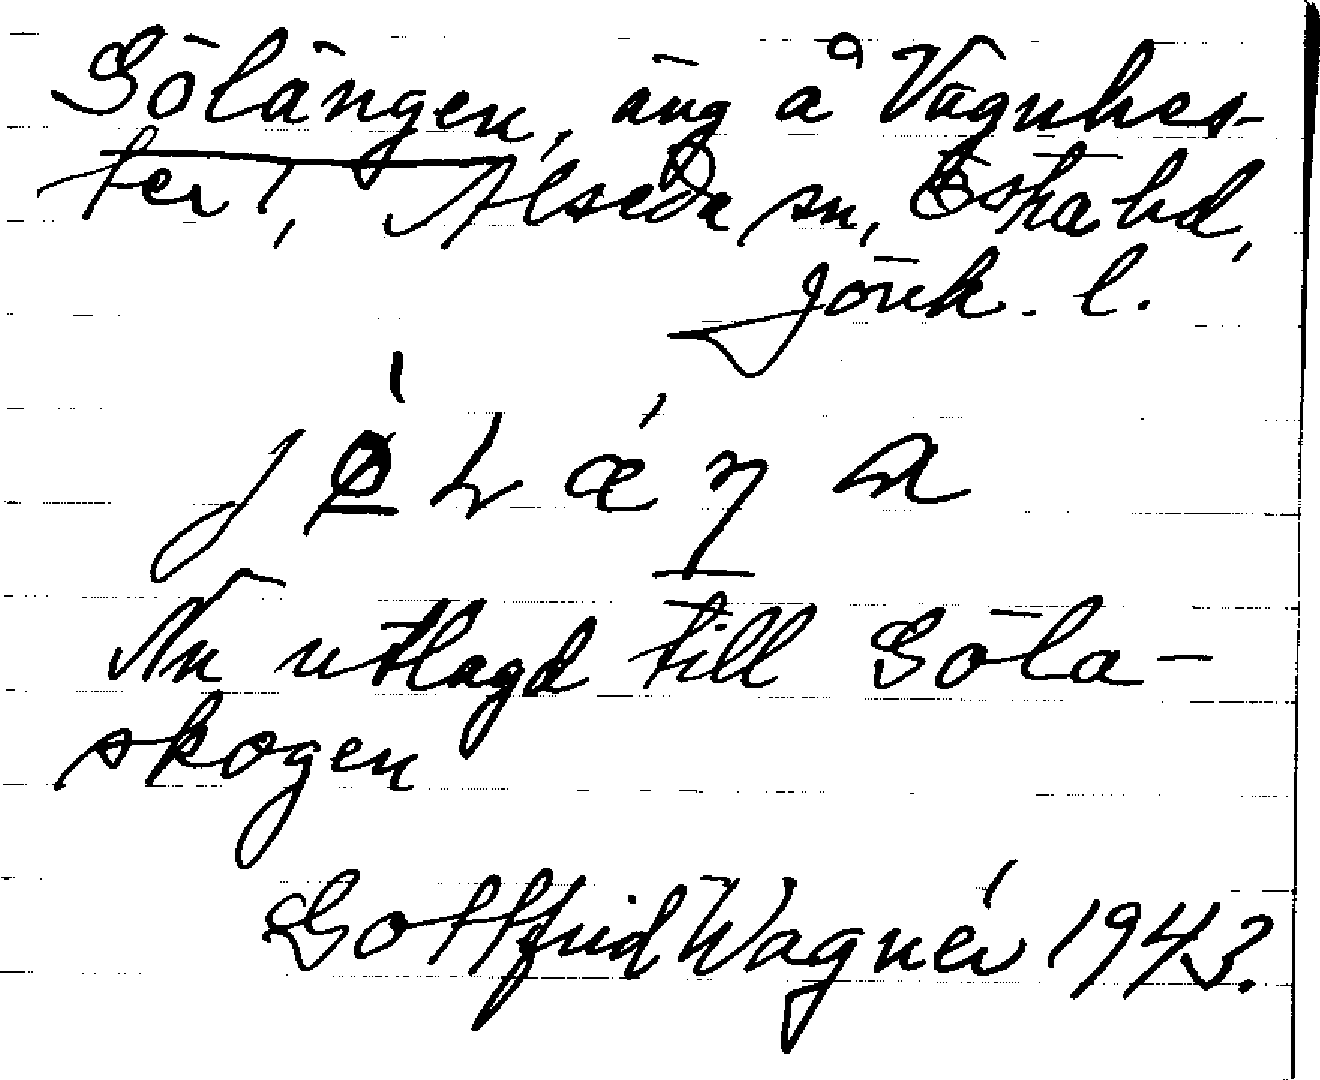 Sölängen, äng å Vagnhes-
ter 1, Alseda sn, Östra hd,
Jönk. l.
Nu utlagd till Söla-
skogen
Gottfrid Wagnér 1943.